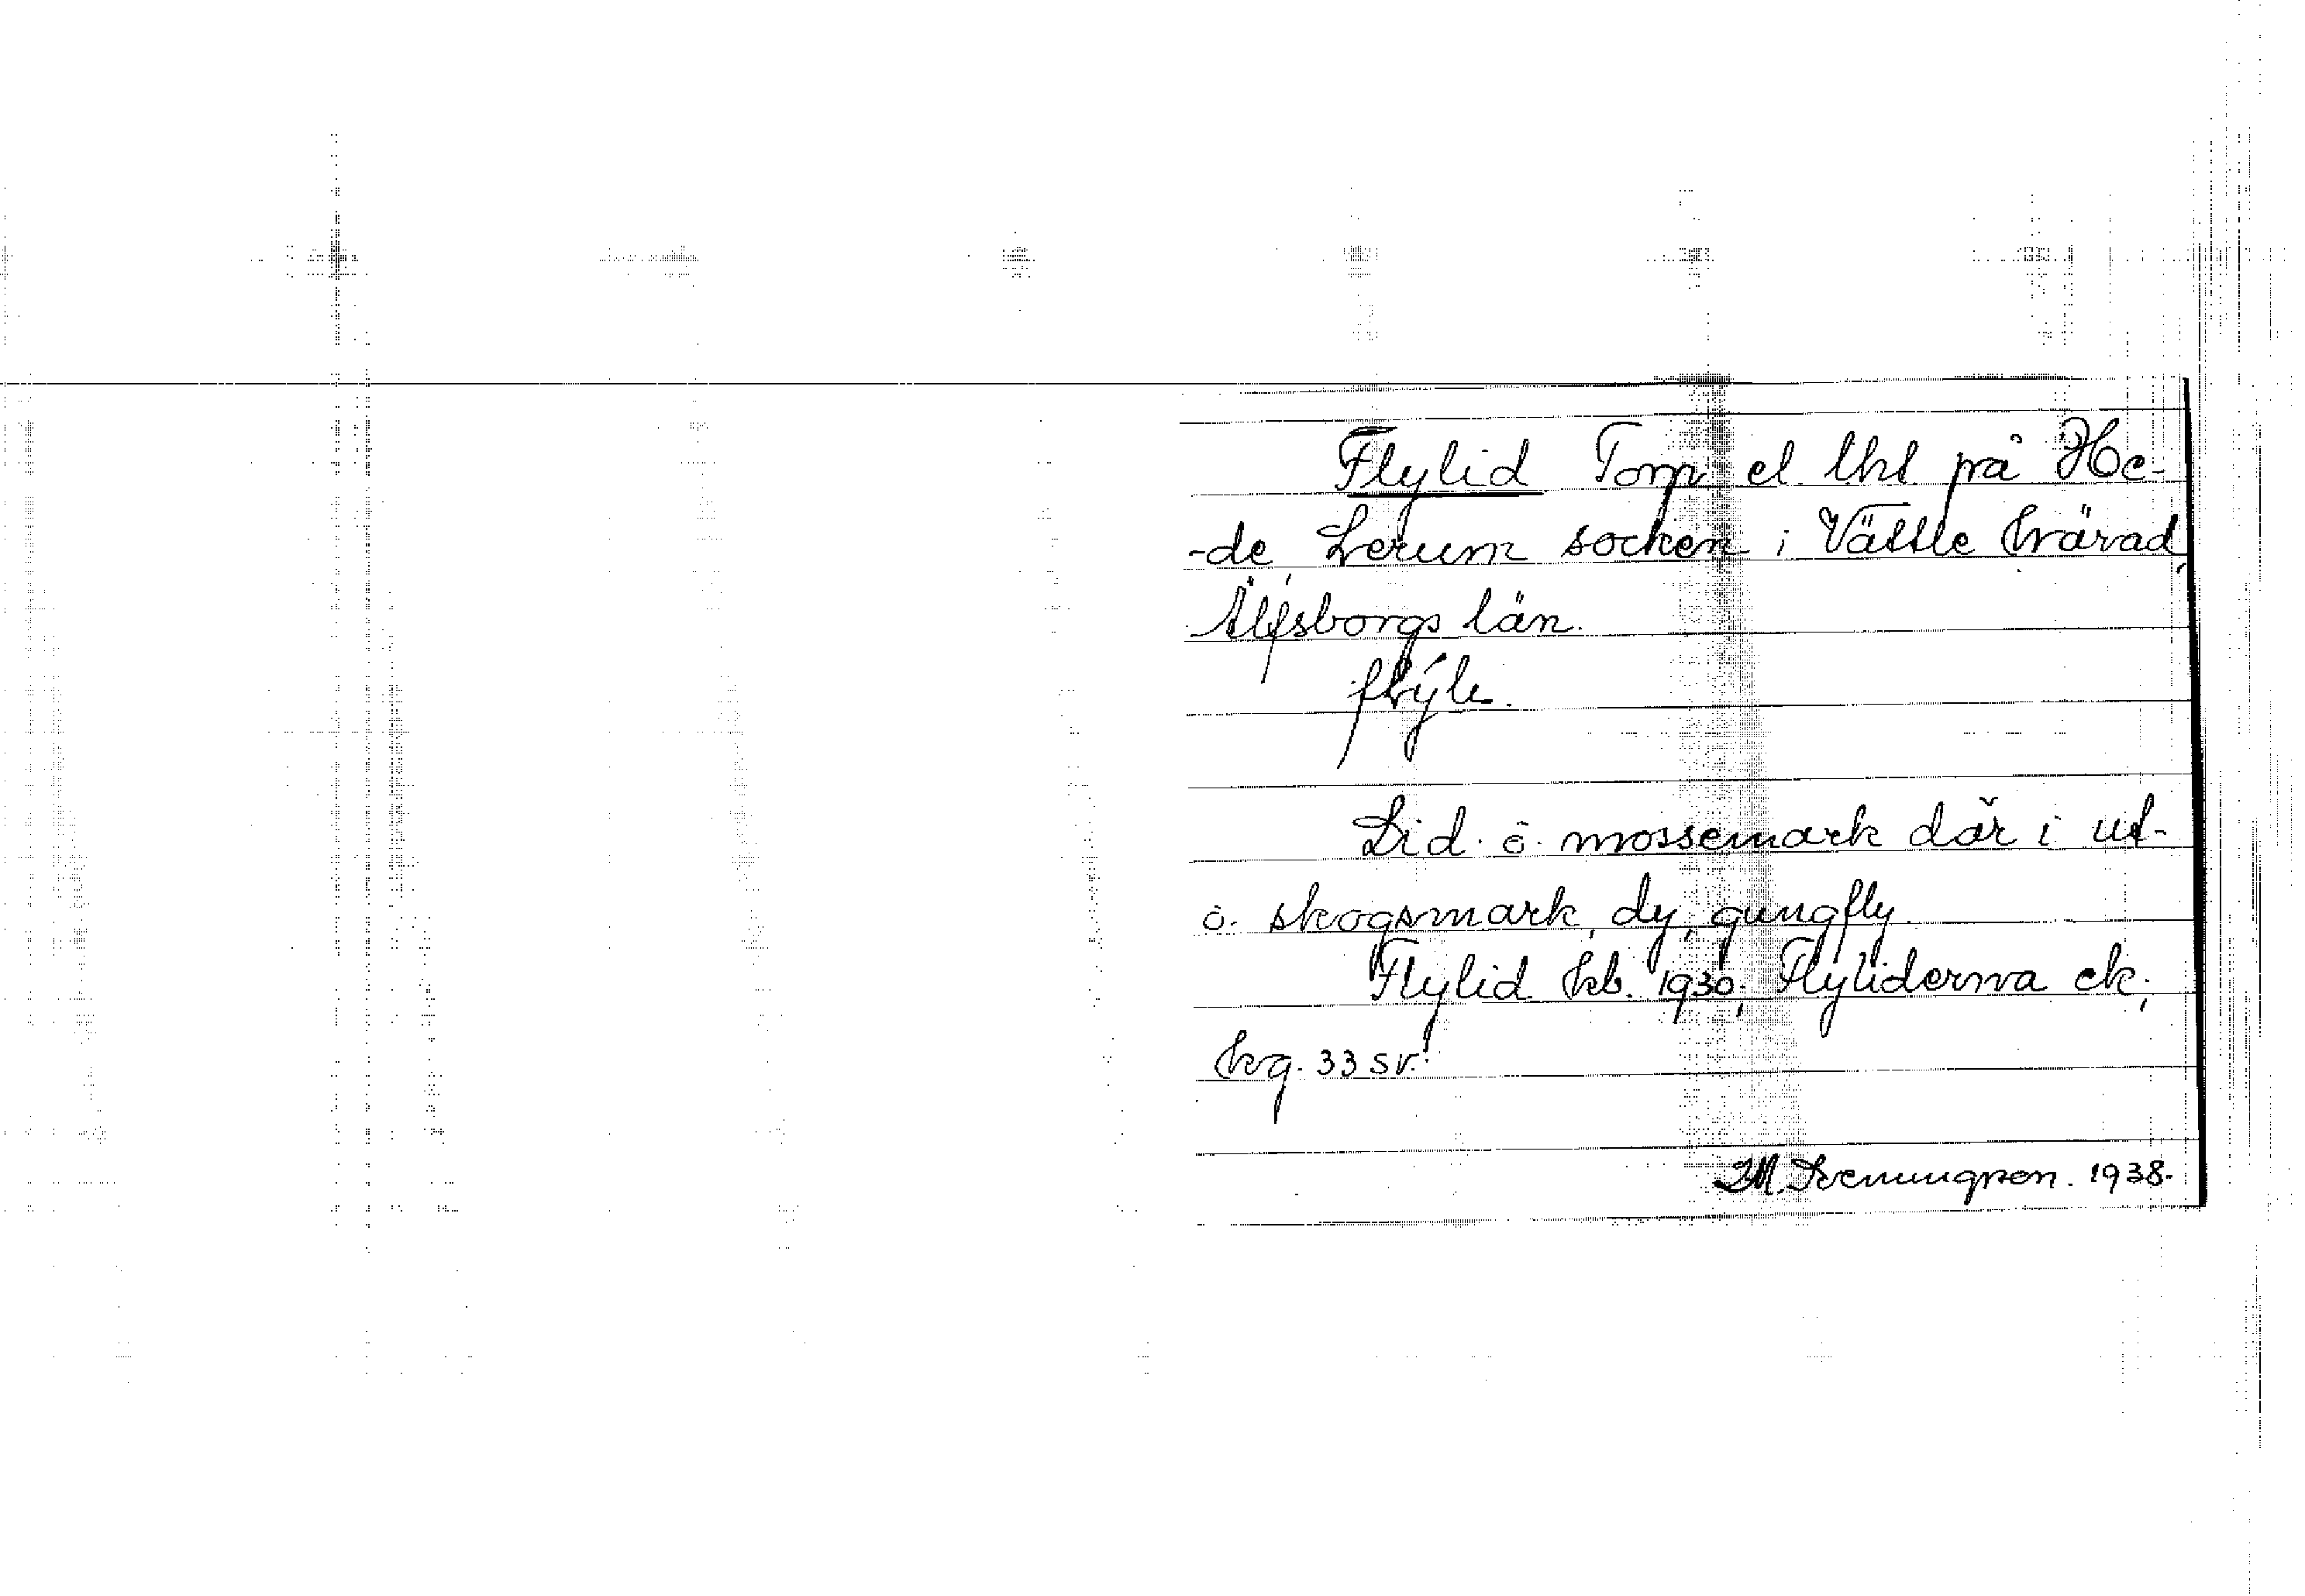 Flylid Torp el. lht på He-
-de, Lerum socken i Vättle härad,
Älfsborgs län.
flýle.
Lid. o. mossemark där i ut-
o. skogsmark, dy, gungfly.
Flylid kb. 1930; Flyliderna ek;
hg. 33 sv.
1938.